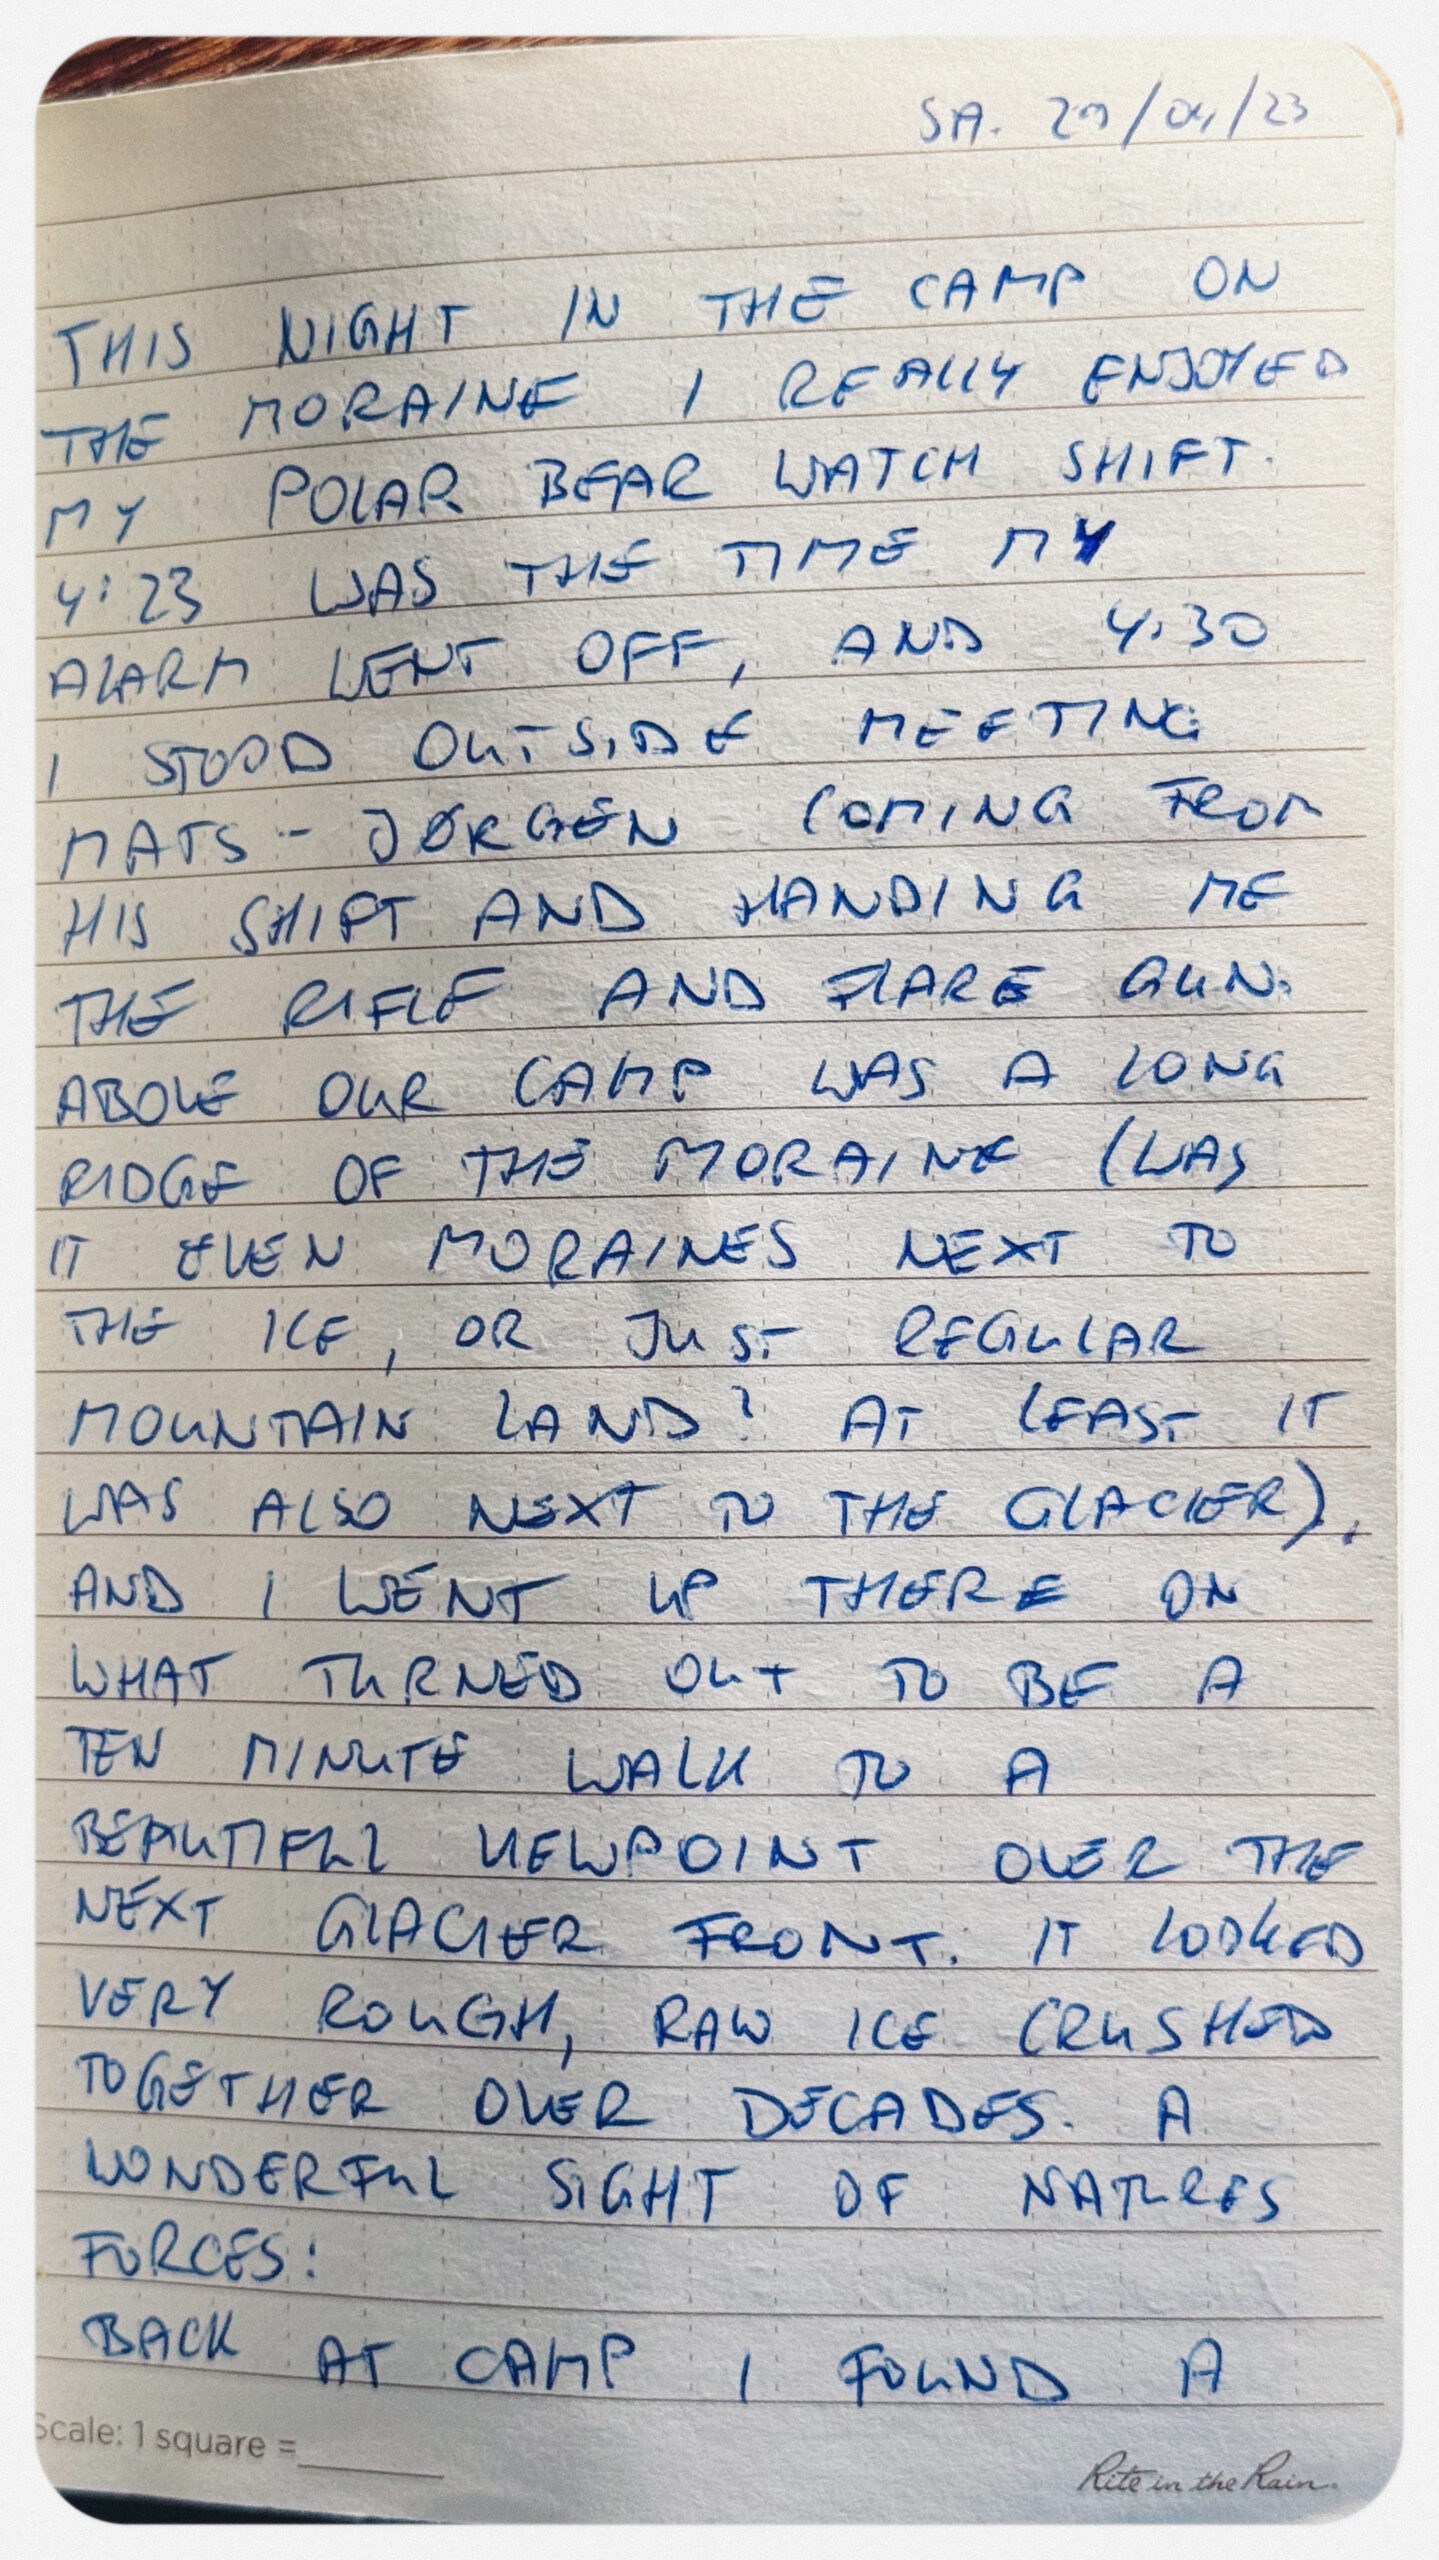 SA. 29/04/23
THIS NIGHT IN THE CAMP ON
THE MORAINE I REALLY ENJOYED
MY POLAR BEAR WATCH SHIFT.
4:23 WAS THE TIME MY
ALARM WENT OFF, AND 4:30
I STOOD OUTSIDE MEETING
MATS-JØRGEN COMING FROM
HIS SHIFT AND HANDING ME
THE RIFLE AND FLARE GUN.
ABOVE OUR CAMP WAS A LONG
RIDGE OF THE MORAINE (WAS
IT EVEN MORAINES NEXT TO
THE ICE, OR JUST REGULAR
MOUNTAIN LAND? AT LEAST IT
WAS ALSO NEXT TO THE GLACIER),
AND I WENT UP THERE ON
WHAT TURNED OUT TO BE A
TEN MINUTE WALK TO A
BEAUTIFULL VIEWPOINT OVER THE
NEXT GLACIER FRONT. IT LOOKED
VERY ROUGH, RAW ICE CRUSHED
TOGETHER OVER DECADES. A
WONDERFUL SIGHT OF NATURES
FORCES!
BACK AT CAMP I FOUND A
Scale: 1 square =
Rite in the Rain